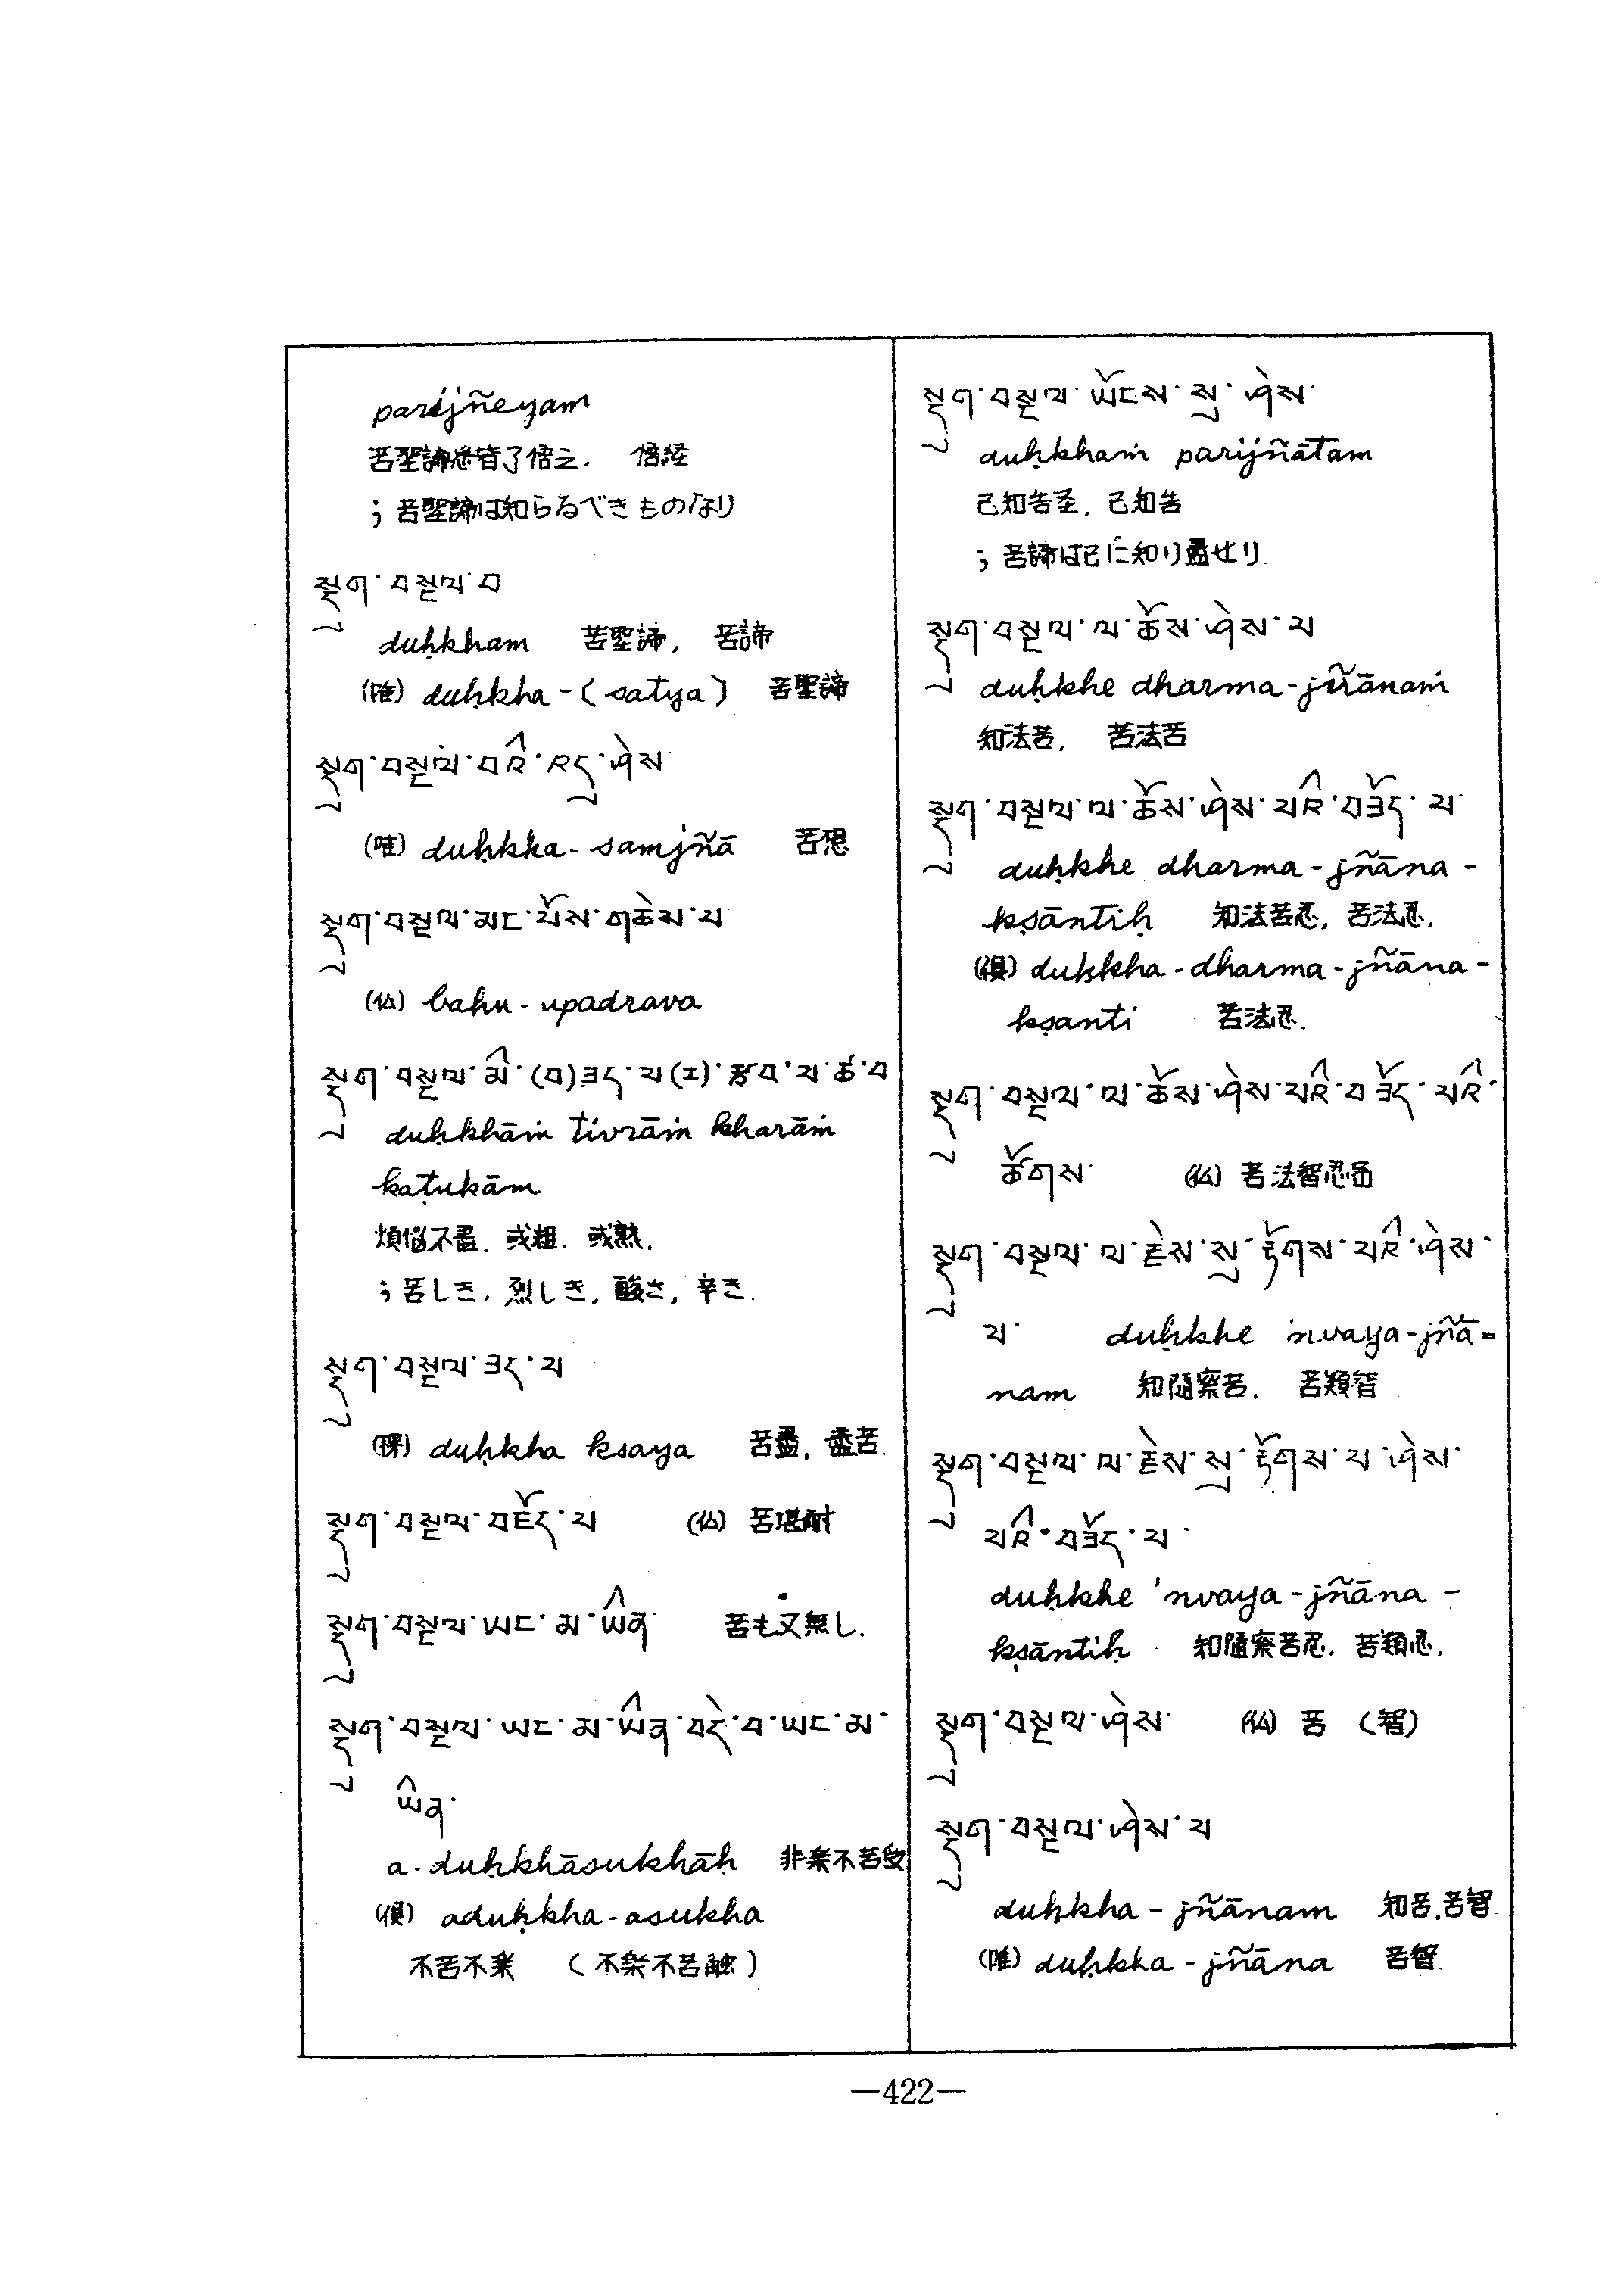 parijñeyam
苦聖諦悉皆了悟之. 悟経
; 苦聖諦は知らるべきものなり
སྡུག་བསྔལ་བ
duḥkham 苦聖諦, 苦諦
(唯) duḥkha-(satya) 苦聖諦
སྡུག་བསྔལ་བའི་འདུ་ཤེས
(唯) duḥkha-samjñā 苦想
སྡུག་བསྔལ་མང་པོས་གཙེས་པ
(仏) bahu-upadrava
སྡུག་བསྔལ་མི་(བ)ཟད་པ(ར)་རྩུབ་པ་ཚ་བ
duḥkhāṁ tivrāṁ kharāṁ
kaṭukām
煩悩不盡. 或粗. 或熟.
; 苦しき. 烈しき. 酸き, 辛き.
སྡུག་བསྔལ་ཟད་པ
duḥkha ksaya 苦盡, 盡苦.
སྡུག་བསྔལ་བཟོད་པ (仏) 苦堪耐
སྡུག་བསྔལ་ཡང་མ་ཡིན 苦も又無し.
སྡུག་བསྔལ་ཡང་མ་ཡིན་བདེ་བ་ཡང་མ་
ཡིན་
a-duḥkhāsukhāḥ 非楽不苦受
(倶) aduḥkha-asukha
不苦不楽 (不楽不苦触)
—422—
སྡུག་བསྔལ་ཡོངས་སུ་ཤེས་
duḥkhaṁ parijñātam
已知苦圣, 已知苦
; 苦諦は已に知り盡せり.
སྡུག་བསྔལ་ལ་ཆོས་ཤེས་པ
duḥkhe dharma-jñānaṁ
知法苦, 苦法苦
སྡུག་བསྔལ་ལ་ཆོས་ཤེས་པའི་བཟོད་པ་
duḥkhe dharma-jñāna-
kṣāntiḥ 知法苦忍, 苦法忍.
(倶) duḥkha-dharma-jñāna-
kṣanti 苦法忍.
སྡུག་བསྔལ་ལ་ཆོས་ཤེས་པའི་བཟོད་པའི་
ཚོགས་ (仏) 苦法智忍
སྡུག་བསྔལ་ལ་རྗེས་སུ་རྟོགས་པའི་ཤེས་
པ་ duḥkhe 'nvaya-jñā-
nam 知隨察苦. 苦類智
སྡུག་བསྔལ་ལ་རྗེས་སུ་རྟོགས་པ་ཤེས་
པའི་བཟོད་པ་
duḥkhe 'nvaya-jñāna-
kṣāntiḥ 知隨察苦忍. 苦類忍.
སྡུག་བསྔལ་ཤེས་ (仏) 苦 (智)
སྡུག་བསྔལ་ཤེས་པ
duḥkha-jñānam 知苦, 苦智
(唯) duḥkha-jñāna 苦智.